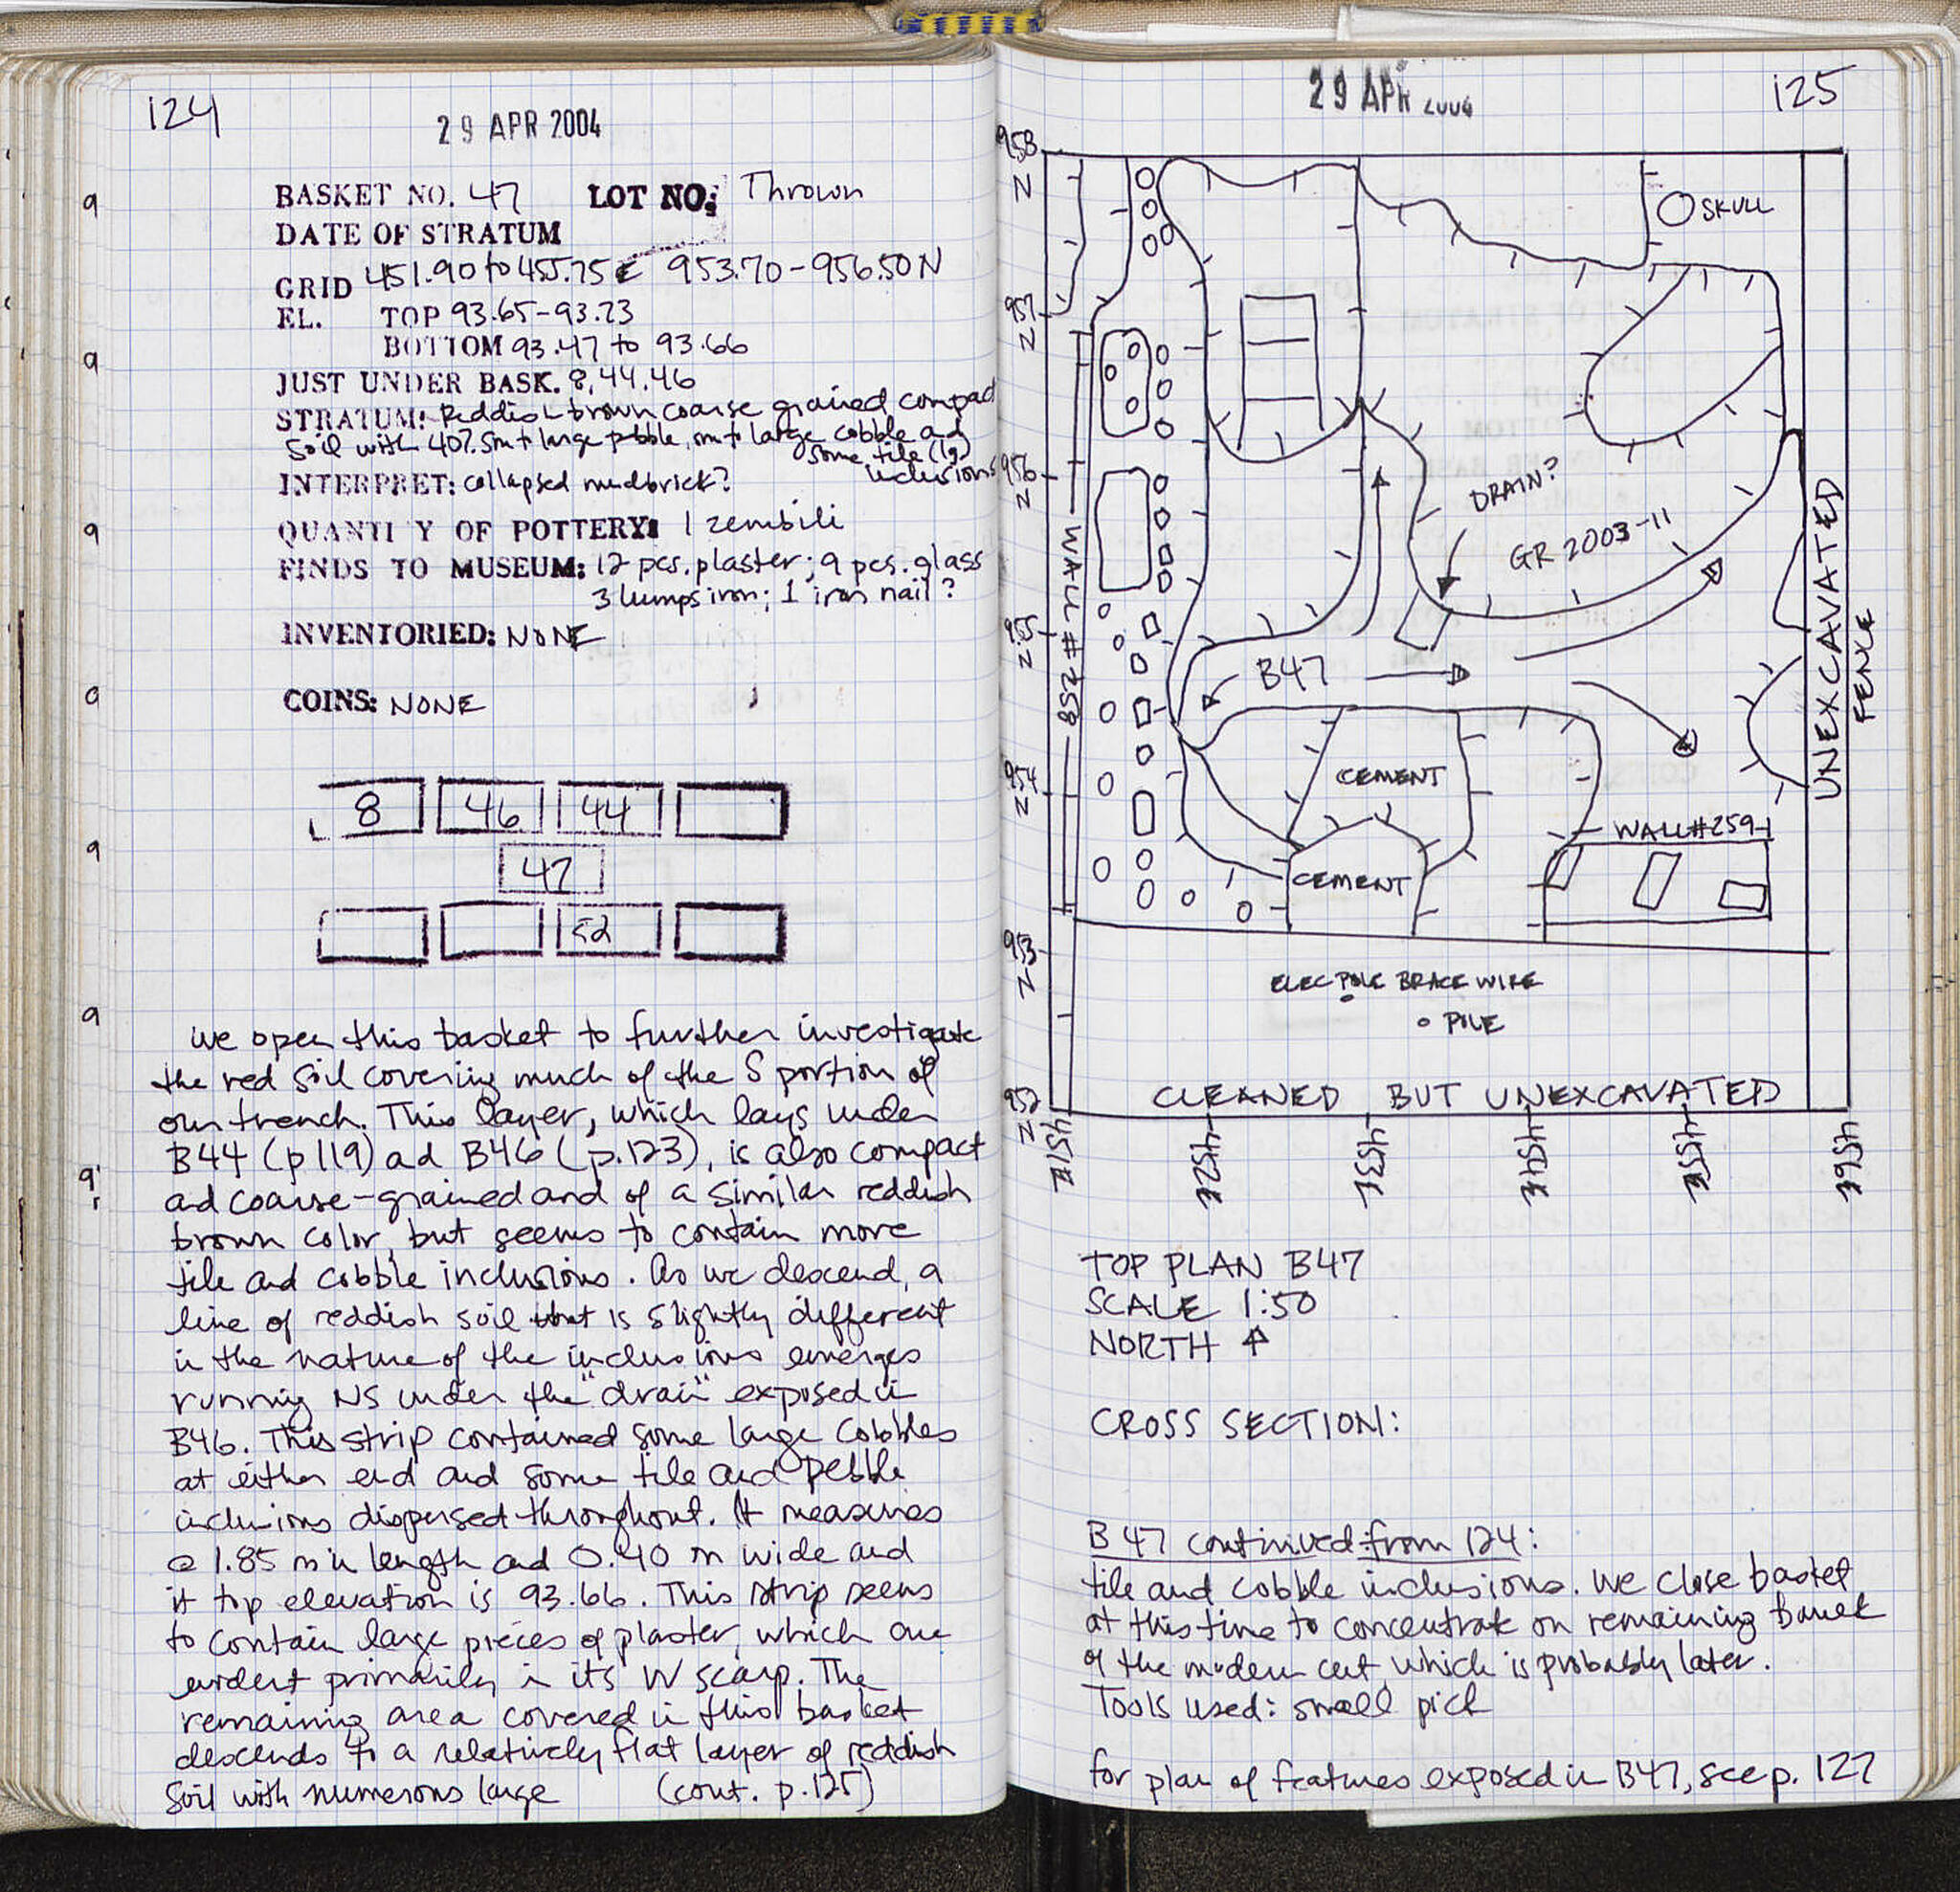 124
29 APR 2004
BASKET NO. 47 LOT NO: Thrown
DATE OF STRATUM
GRID 451.90 to 455.75 E 953.70-956.50 N
EL. TOP 93.65-93.73
BOTTOM 93.47 to 93.66
JUST UNDER BASK. 8, 44, 46
STRATUM: Reddish brown coarse grained compact
soil with 40% sm to large pebble, sm to large cobble and
some tile (lg)
inclusions
INTERPRET: collapsed mudbrick?
QUANTI Y OF POTTERY: 1 zembili
FINDS TO MUSEUM: 12 pcs. plaster; 9 pcs. glass
3 lumps iron; 1 iron nail?
INVENTORIED: NONE
COINS: NONE
8 46 44
47
52
We open this basket to further investigate
the red soil covering much of the S portion of
our trench. This layer, which lays under
B44 (p 119) ad B46 (p. 123), is also compact
and coarse-grained and of a similar reddish
brown color, but seems to contain more
tile and cobble inclusions. As we descend, a
line of reddish soil that is slightly different
in the nature of the inclusions emerges
running NS under the "drain" exposed in
B46. This strip contained some large cobbles
at either end and some tile and pebble
inclusions dispersed throughout. It measures
@ 1.85 m in length and 0.40 m wide and
it top elevation is 93.66. This strip seems
to contain large pieces of plaster, which are
evident primarily in its W scarp. The
remaining area covered in this basket
descends to a relatively flat layer of reddish
soil with numerous large (cont. p. 125)
29 APR 2004
125
958 N
SKULL
957 N
956 N
DRAIN?
GR 2003-11
WALL # 258
955 N
B47
UNEXCAVATED
FENCE
954 N
CEMENT
WALL #259
CEMENT
953 N
ELEC POLE BRACE WIRE
PILE
952 N
CLEANED BUT UNEXCAVATED
451E 452E 453E 454E 455E 456E
TOP PLAN B47
SCALE 1:50
NORTH ↑
CROSS SECTION:
B 47 continued from 124:
tile and cobble inclusions. We close basket
at this time to concentrate on remaining baulk
of the modern cut which is probably later.
Tools used: small pick
for plan of features exposed in B47, see p. 127